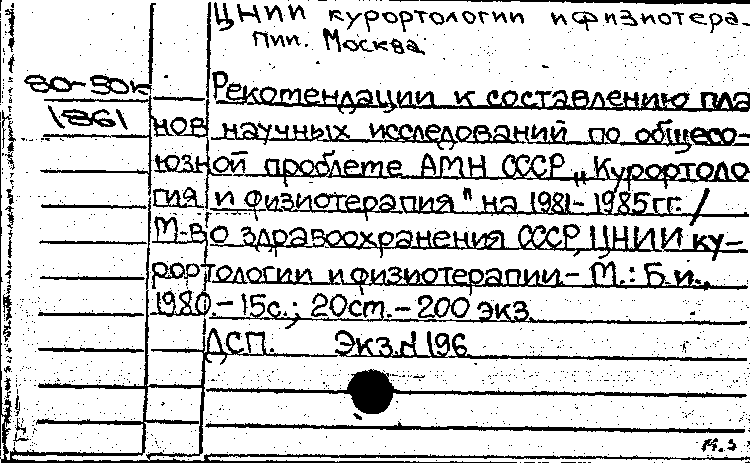 ЦНИИ курортологии и физиотера-
пии. Москва
80-50к
1861
Рекомендации к составлению пла
нов научных исследований по общесо-
юзной проблеме АМН СССР „Курортоло
гия и физиотерапия" на 1981-1985гг. /
М-во здравоохранения СССР, ЦНИИ ку-
рортологии и физиотерапии.- М.: Б.и.,
1980.-15с.; 20см.-200 экз.
ДСП. Экз.N 196